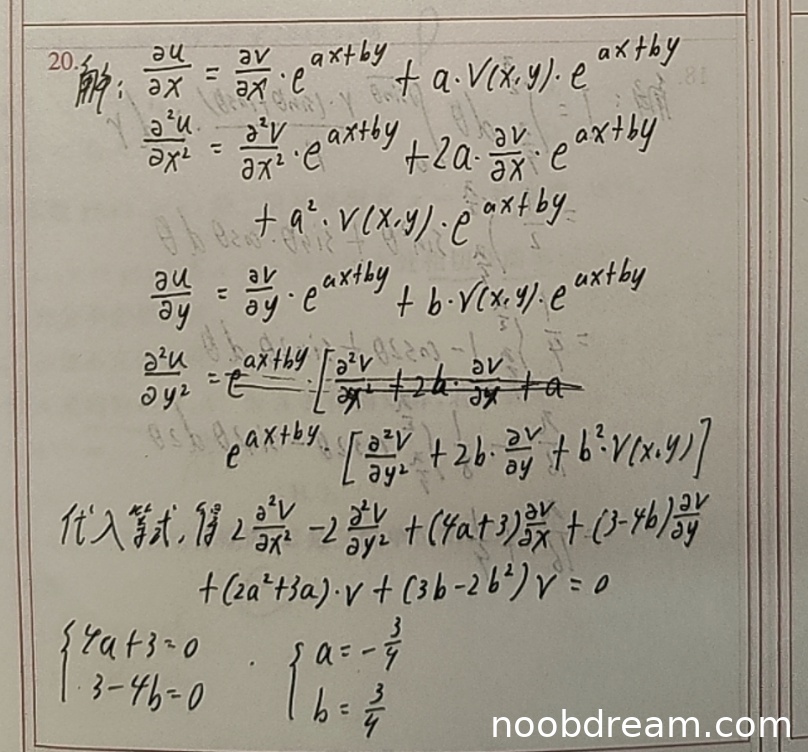 20. 解: ∂u/∂x = ∂v/∂x · e^{ax+by} + a·v(x,y)·e^{ax+by}
∂²u/∂x² = ∂²v/∂x² · e^{ax+by} + 2a·∂v/∂x · e^{ax+by}
+ a²·v(x,y)·e^{ax+by}
∂u/∂y = ∂v/∂y · e^{ax+by} + b·v(x,y)·e^{ax+by}
∂²u/∂y² = e^{ax+by}·[∂²v/∂x² + 2b·∂v/∂x + a
e^{ax+by}·[∂²v/∂y² + 2b·∂v/∂y + b²·v(x,y)]
代入等式,得 2 ∂²v/∂x² - 2 ∂²v/∂y² + (4a+3)∂v/∂x + (3-4b)∂v/∂y
+(2a²+3a)·v + (3b-2b²)v = 0
{ 4a+3=0 . { a = -3/4
3-4b=0 b = 3/4
noobdream.com